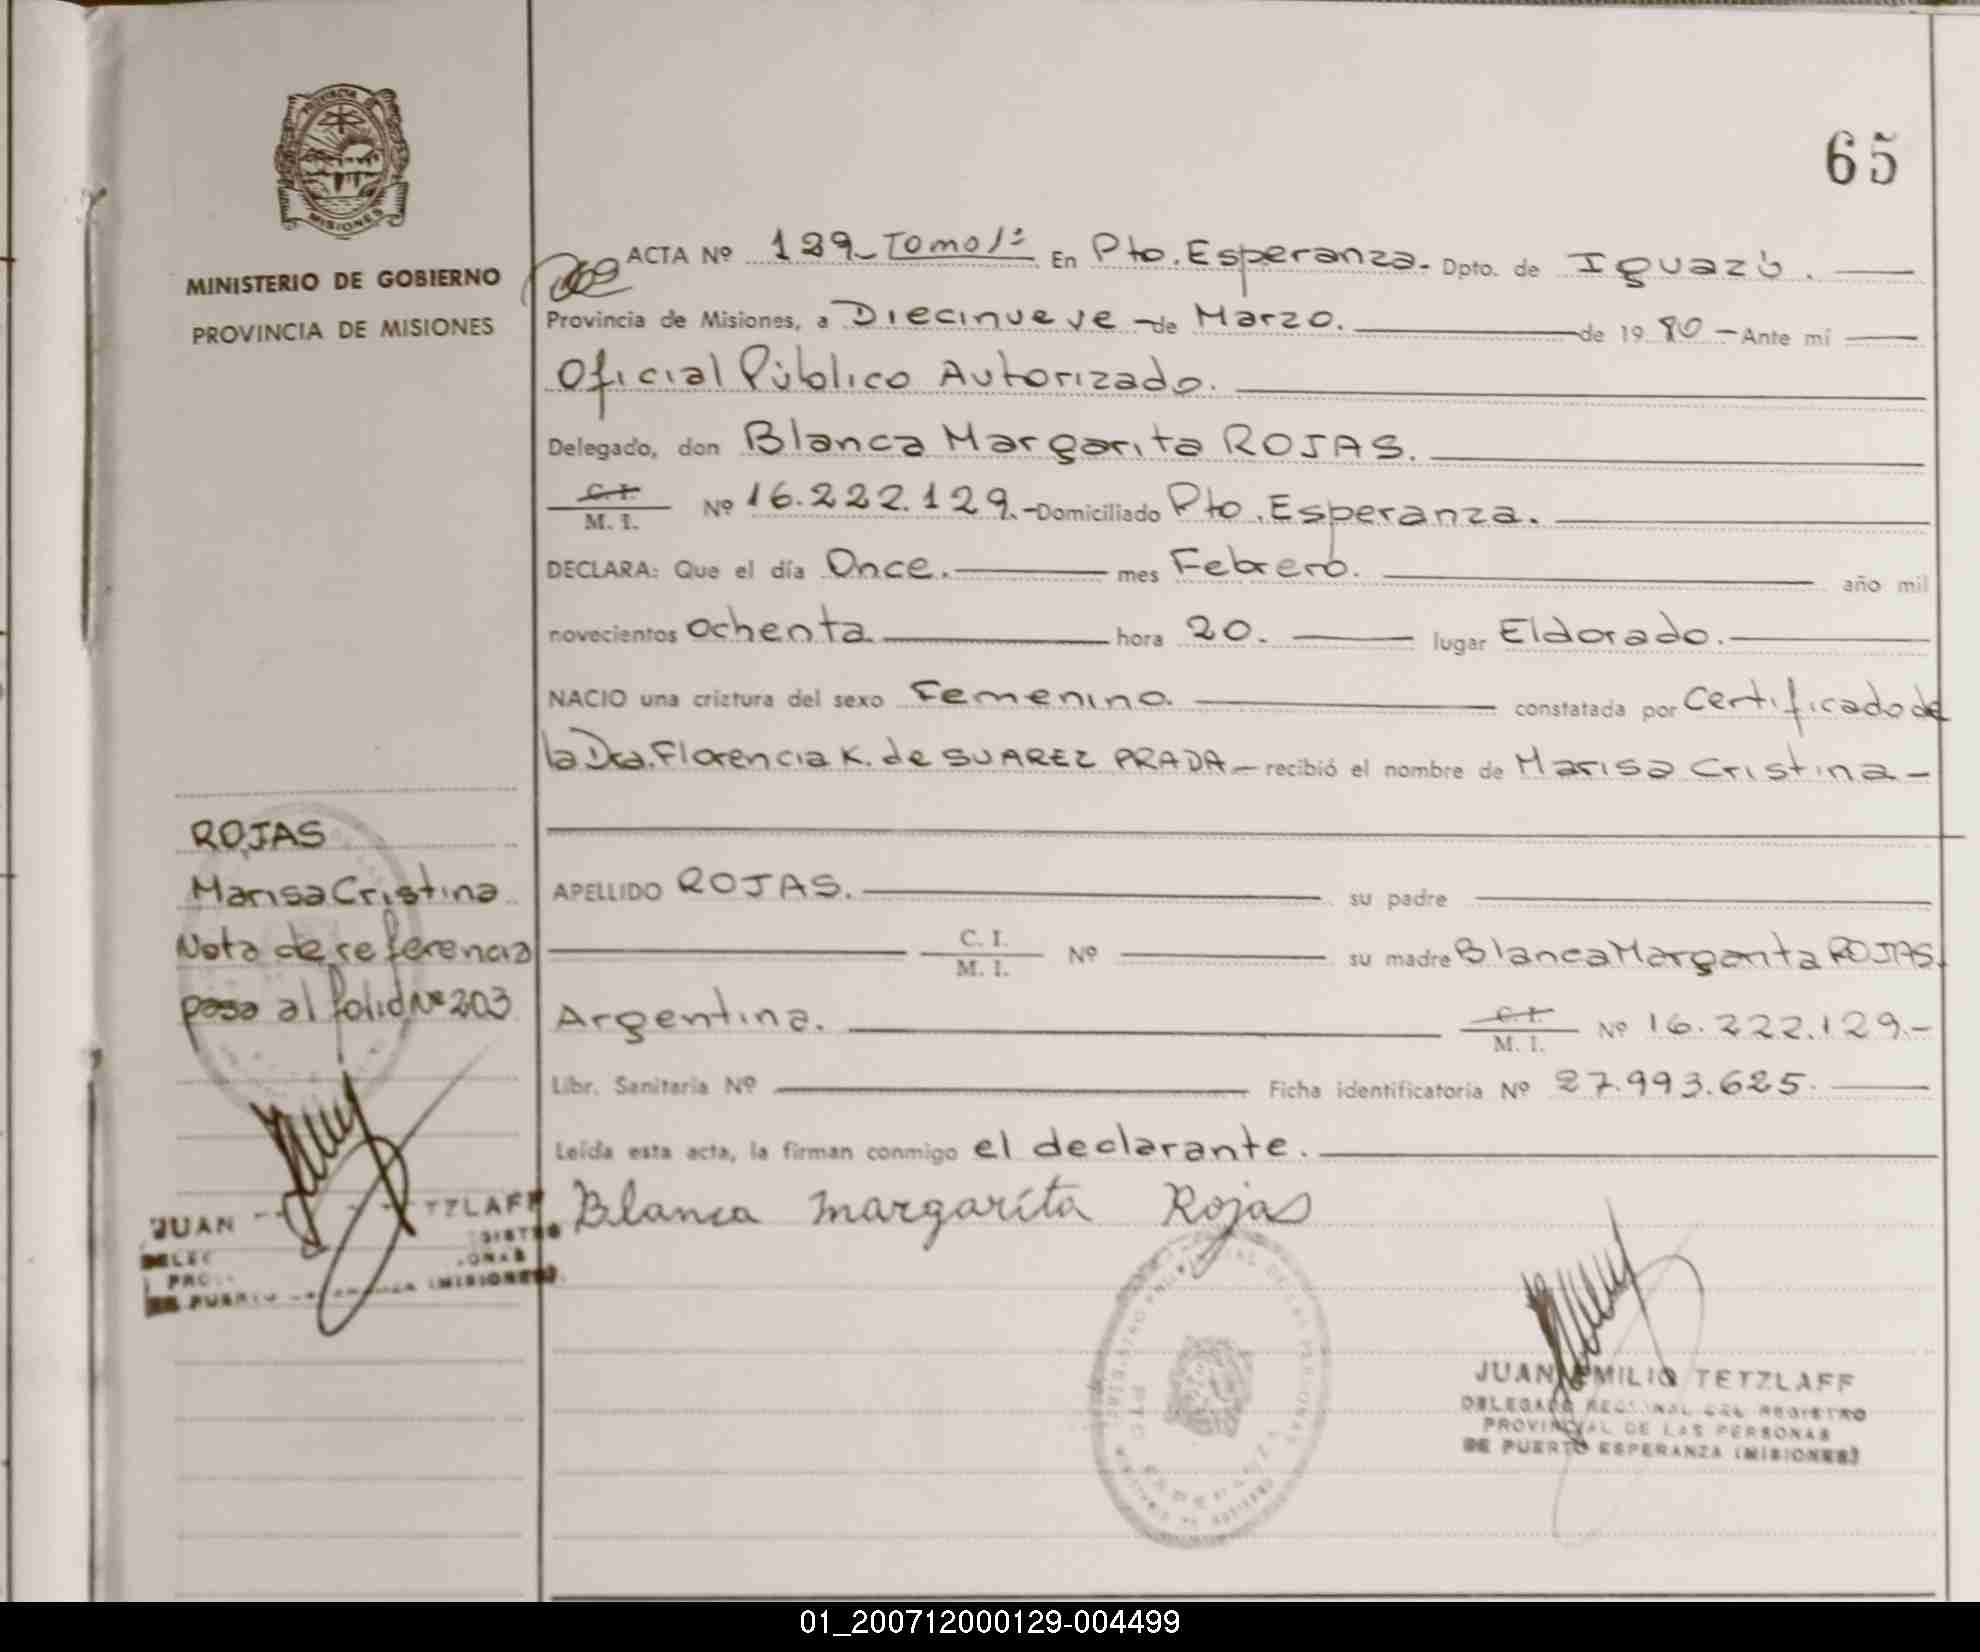 PROVINCIA DE
MISIONES
MINISTERIO DE GOBIERNO
PROVINCIA DE MISIONES
65
ACTA Nº 129_Tomo 1º En Pto. Esperanza. Dpto. de Iguazú.
Provincia de Misiones, a Diecinueve de Marzo. de 1980 Ante mí
Oficial Público Autorizado.
Delegado, don Blanca Margarita ROJAS.
C. I.
M. I. Nº 16.222.129.- Domiciliado Pto. Esperanza.
DECLARA: Que el día Once. mes Febrero. año mil
novecientos ochenta hora 20. lugar Eldorado.
NACIO una criatura del sexo Femenino. constatada por Certificado de
la Dra. Florencia K. de SUAREZ PRADA_ recibió el nombre de Marisa Cristina-
ROJAS
Marisa Cristina
Nota de referencia
pasa al folio Nº 203
APELLIDO ROJAS. su padre
C. I.
M. I. Nº su madre Blanca Margarita ROJAS,
Argentina. C. I.
M. I. Nº 16.222.129.-
Libr. Sanitaria Nº Ficha identificatoria Nº 27.993.625.
Leída esta acta, la firman conmigo el declarante.
Blanca margarita Rojas
JUAN TZLAFF
DE PUERTO (MISIONES)
JUAN EMILIO TETZLAFF
DELEGADO REGIONAL DEL REGISTRO
PROVINCIAL DE LAS PERSONAS
DE PUERTO ESPERANZA (MISIONES)
01_200712000129-004499